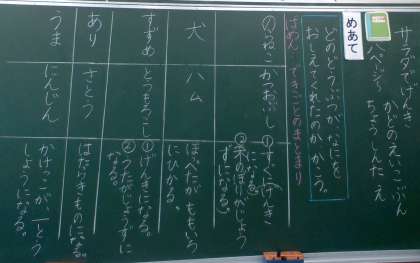 サラダでげんき
かどのえいこ ぶん
八ページ〜 ちょう しんた え
めあて
どのどうぶつが、なにを
おしえてくれたのか かこう。
ばめん…できごとのまとまり
のらねこ
かつおぶし
①すぐにげんき
になる。
②木のぼりがじょう
ずになる。
犬
ハム
ほっぺたがももいろ
にひかる。
すずめ
とうもろこし
①げんきになる。
②うたがじょうずに
なる。
あり
さとう
はたらきものになる。
うま
にんじん
かけっこが、一とう
しょうになる。